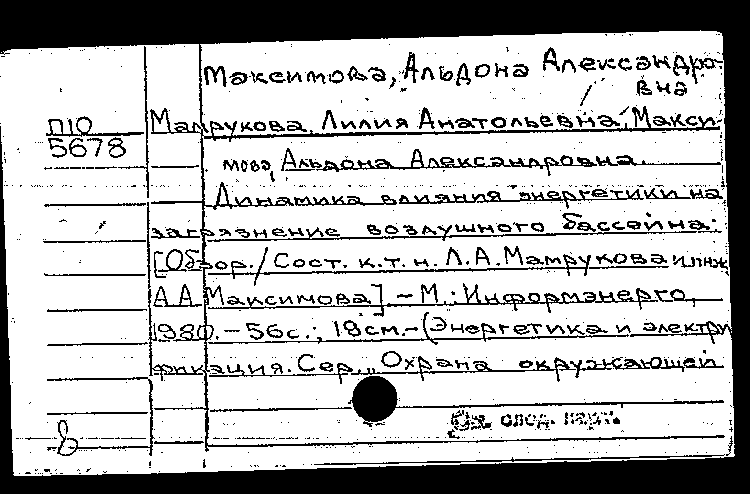 Максимова, Альдона Александро-
вна
П10
5678
Мамрукова, Лилия Анатольевна, Макси-
мова, Альдона Александровна.
Динамика влияния энергетики на
загрязнение воздушного бассейна:
[Обзор. / Сост. к.т.н. Л.А. Мамрукова и инж.
А.А. Максимова]. – М.: Информэнерго,
1980. – 56с.; 18см. – (Энергетика и электри
фикация. Сер. „Охрана окружающей
См. след. карт.